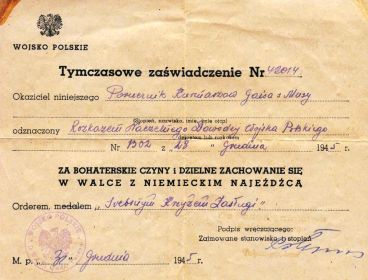 WOJSKO POLSKIE
Tymczasowe zaświadczenie Nr 42014
Okaziciel niniejszego Porucznik
(Stopień, nazwisko, imię, imię ojca)
odznaczony Rozkazem Naczelnego Dowódcy Wojska Polskiego
Nr 1302 z "28" Grudnia 1945 r.
ZA BOHATERSKIE CZYNY i DZIELNE ZACHOWANIE SIĘ
W WALCE Z NIEMIECKIM NAJEŹDŹCĄ
Orderem, medalem "Srebrnym Krzyżem Zasługi"
WOJSKO POLSKIE
Podpis wręczającego:
Zajmowane stanowisko, stopień
M. p. Grudnia 1945 r.